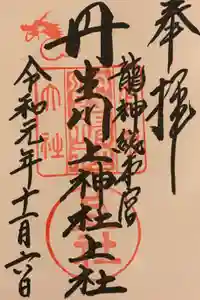 奉拝
龍神総本宮
丹生川上神社上社
令和元年十一月六日